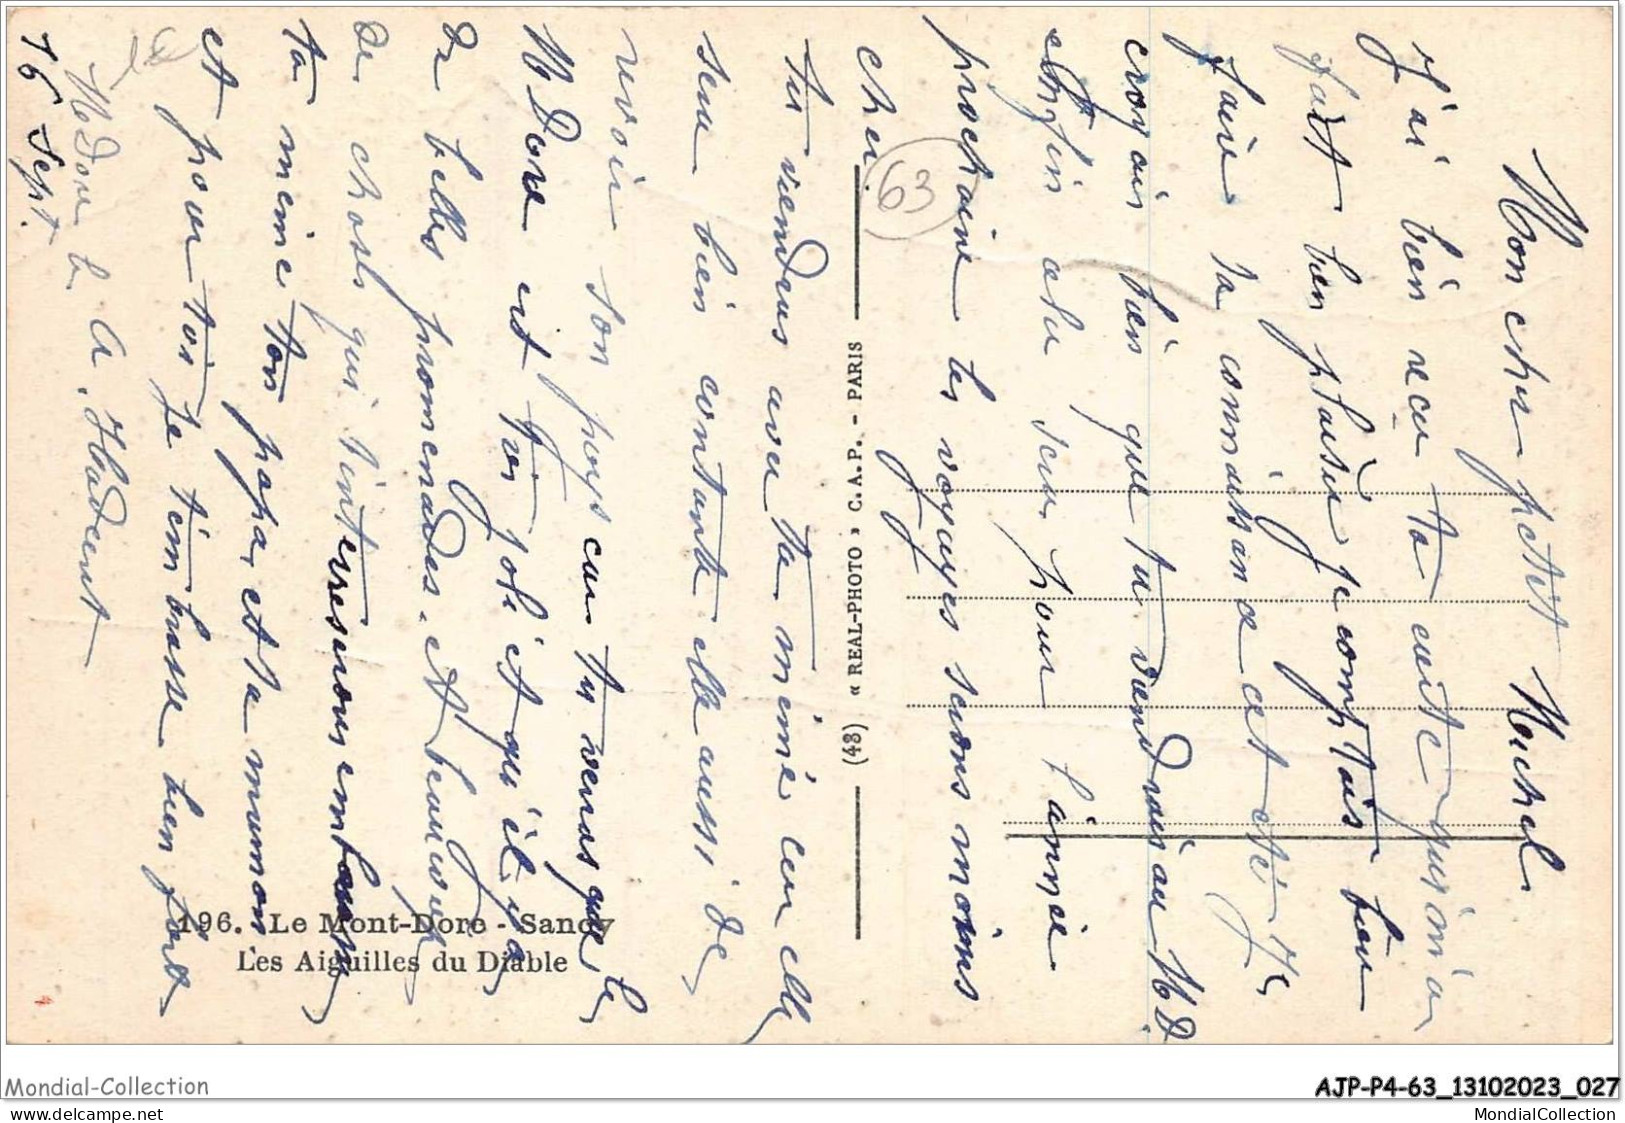 Mon cher petit Michel
J'ai bien reçu ta carte qui m'a
fait bien plaisir je comptais bien
faire ta connaissance cet été je
croyais bien que tu viendrais au M D
enfin cela sera pour l'année
prochaine les voyages serons moins
cher
tu viendras avec ta mémé car elle
sera bien contente elle aussi de
revoir son pays car tu verras que le
M Dore est très joli et qu'il y a
de belles promenades. et beaucoup
de choses qui t'interresserons embrasse
ta mémé ton papa, et ta maman
et pour toi je t'embrasse bien fort
Mt Dore le
16 Sept.
63
(43) « REAL-PHOTO » C.A.P. - PARIS
196. - Le Mont-Dore - Sancy
Les Aiguilles du Diable
Mondial-Collection
AJP-P4-63_13102023_027
delcampe.net
MondialCollection